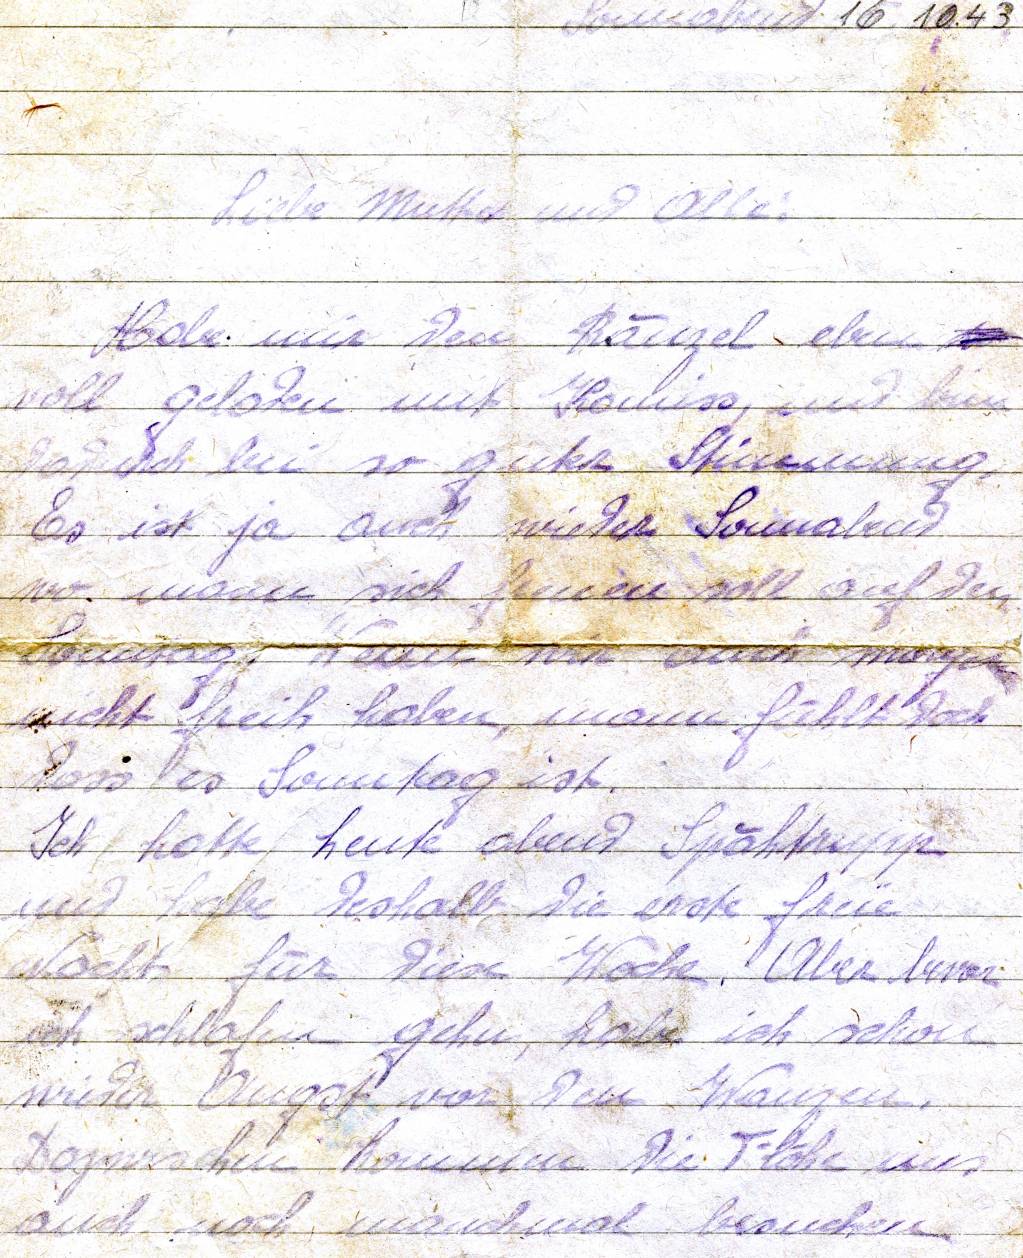 Sonnabend 16 10.43
Liebe Mutter und Alle!
Habe mir den Ränzel eben
voll geladen mit Komiss, und bin
dadurch bei so guter Stimmung.
Es ist ja auch wieder Sonnabend
wo mann sich freuen soll auf den
Sonntag. Wenn wir auch morgen
nicht freih haben, mann fühlt doch
dass es Sonntag ist.
Ich hatte heute abend Spähtrupp
und habe deshalb die erste freie
Nacht für diese Woche. Aber bevor
ich schlafen gehe, habe ich schon
wieder Angst vor den Wanzen.
Dazwischen kommen die Flöhe uns
auch noch manchmal besuchen